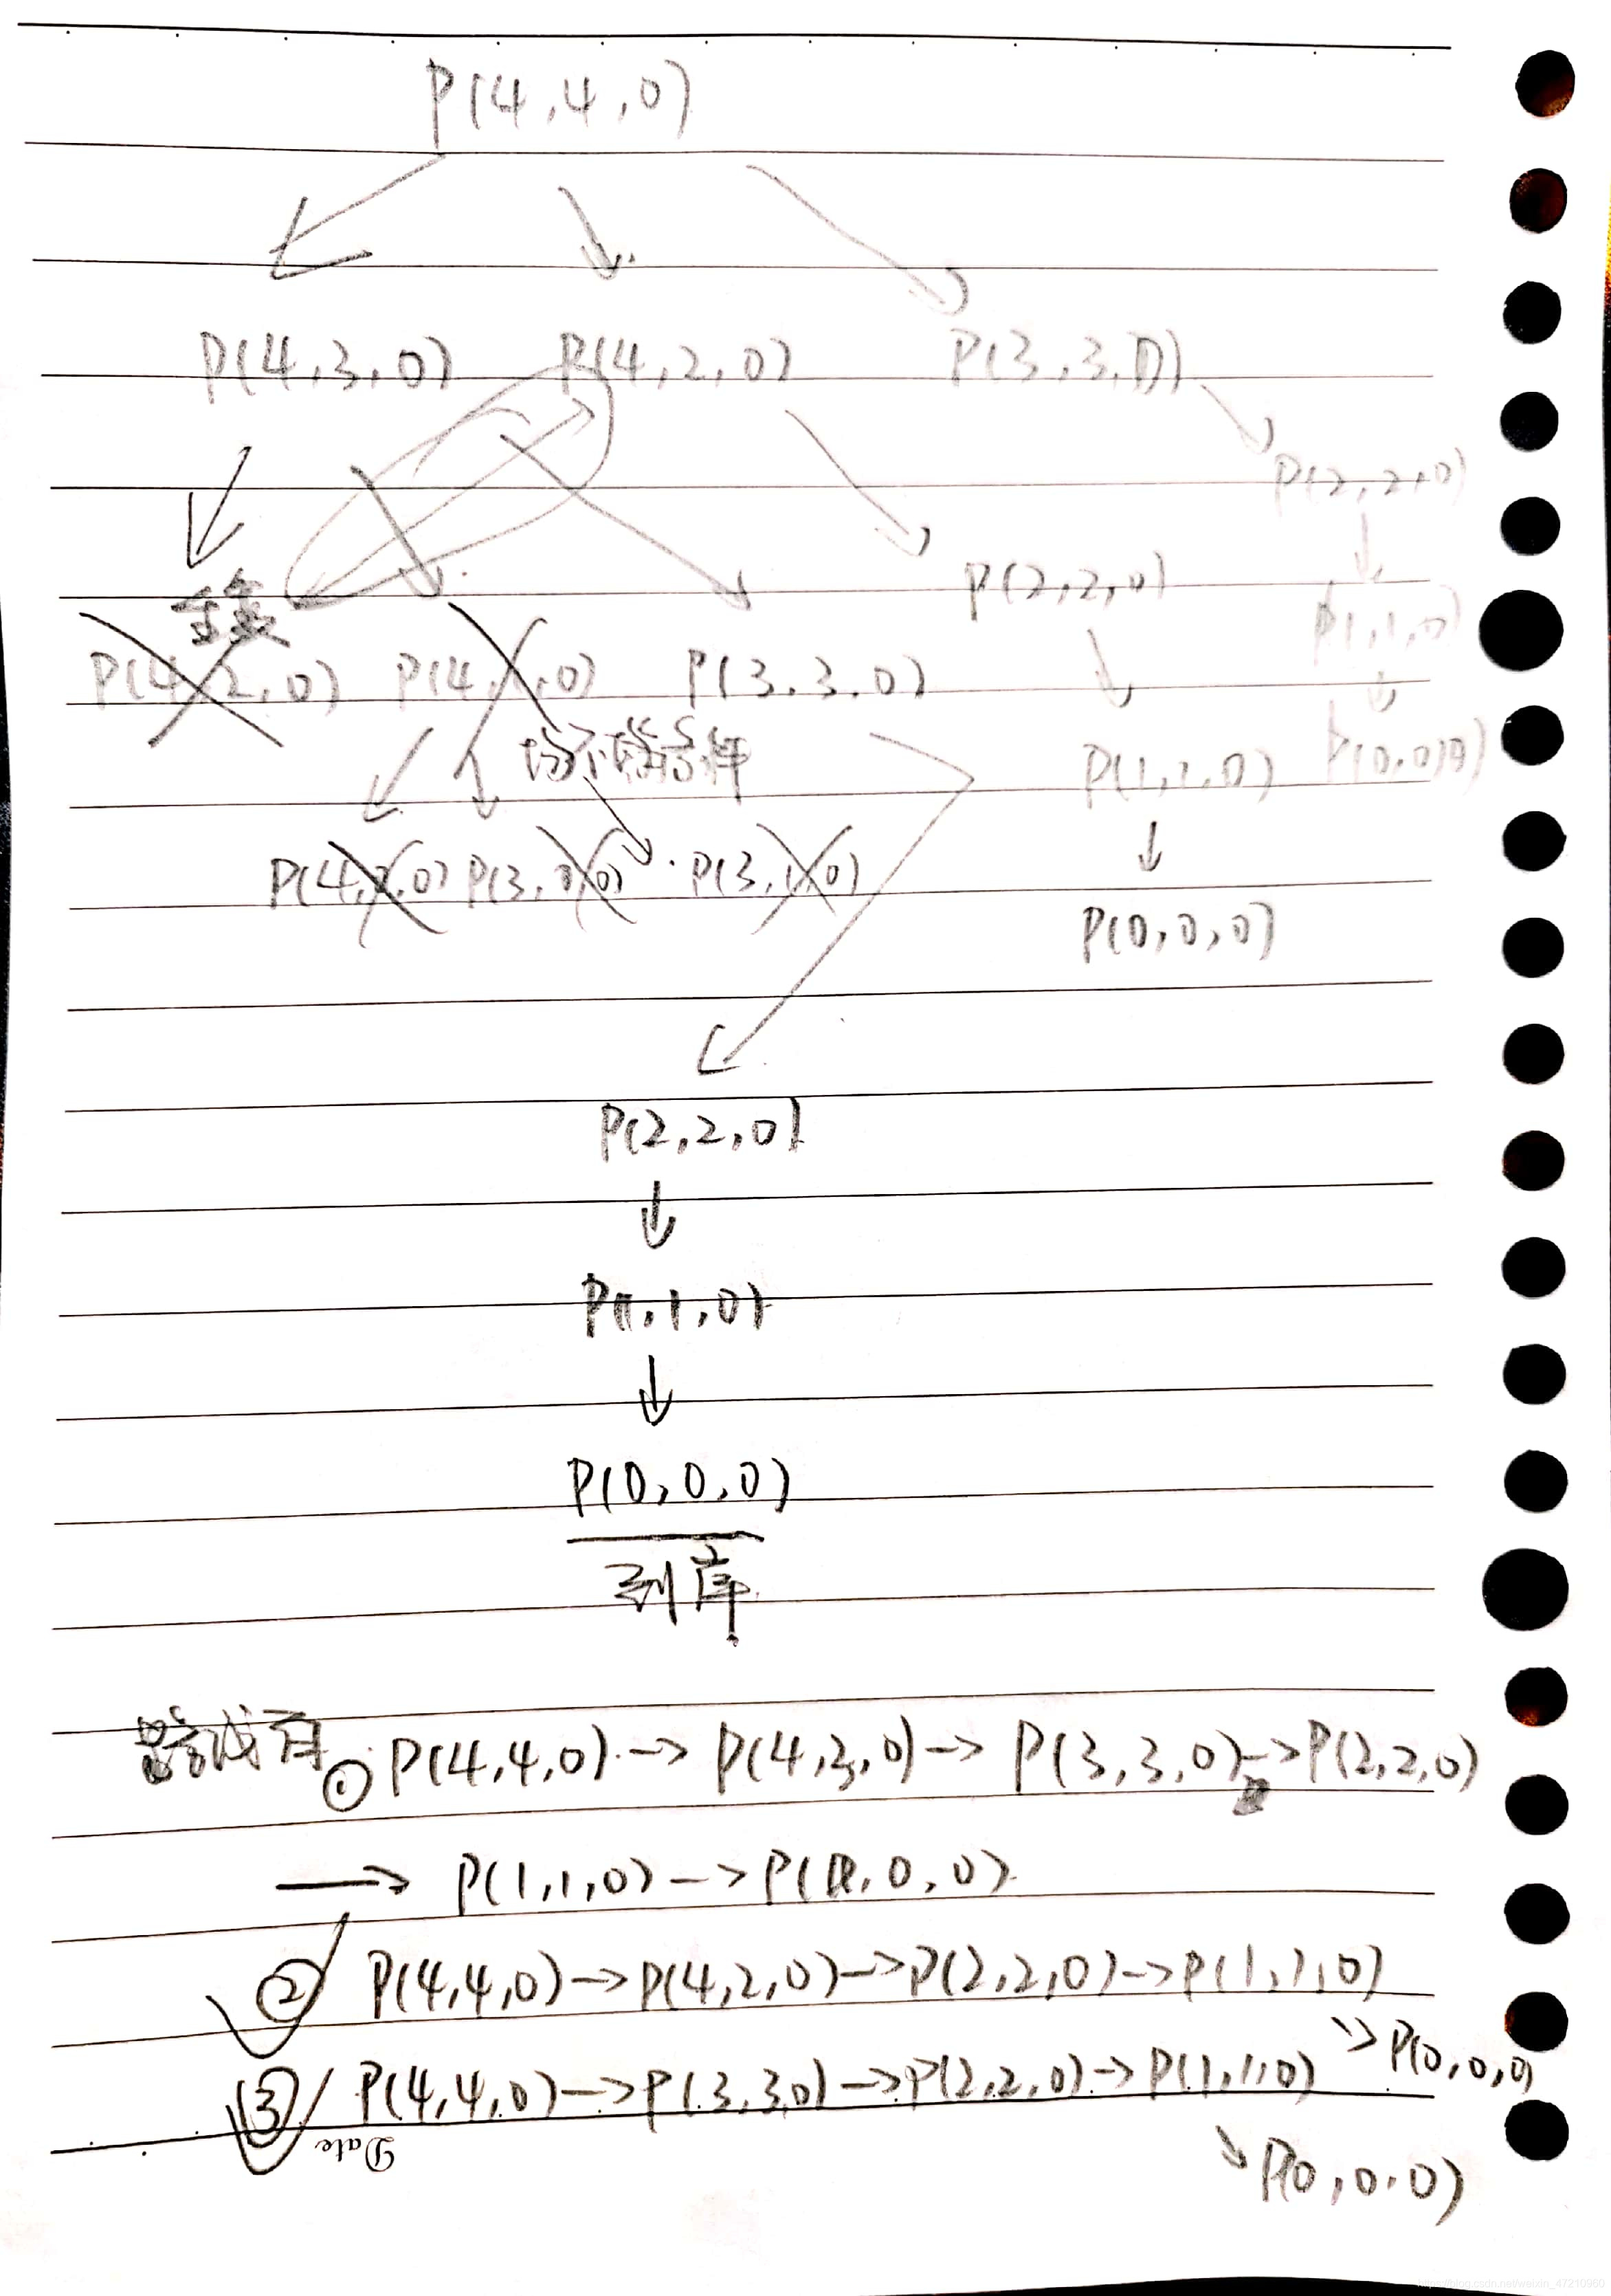 P(4,4,0)
P(4,3,0) P(4,2,0) P(3,3,0)
P(2,2,0)
P(2,2,0)
P(1,1,0)
P(4,2,0) P(4,1,0) P(3,3,0)
均不满足条件
P(1,1,0) P(0,0,0)
P(3,1,0)
P(0,0,0)
P(2,2,0)
P(1,1,0)
P(0,0,0)
到岸
① P(4,4,0) -> P(4,3,0) -> P(3,3,0) -> P(2,2,0)
-> P(1,1,0) -> P(0,0,0)
② P(4,4,0) -> P(4,2,0) -> P(2,2,0) -> P(1,1,0)
-> P(0,0,0)
③ P(4,4,0) -> P(3,3,0) -> P(2,2,0) -> P(1,1,0)
-> P(0,0,0)
Date